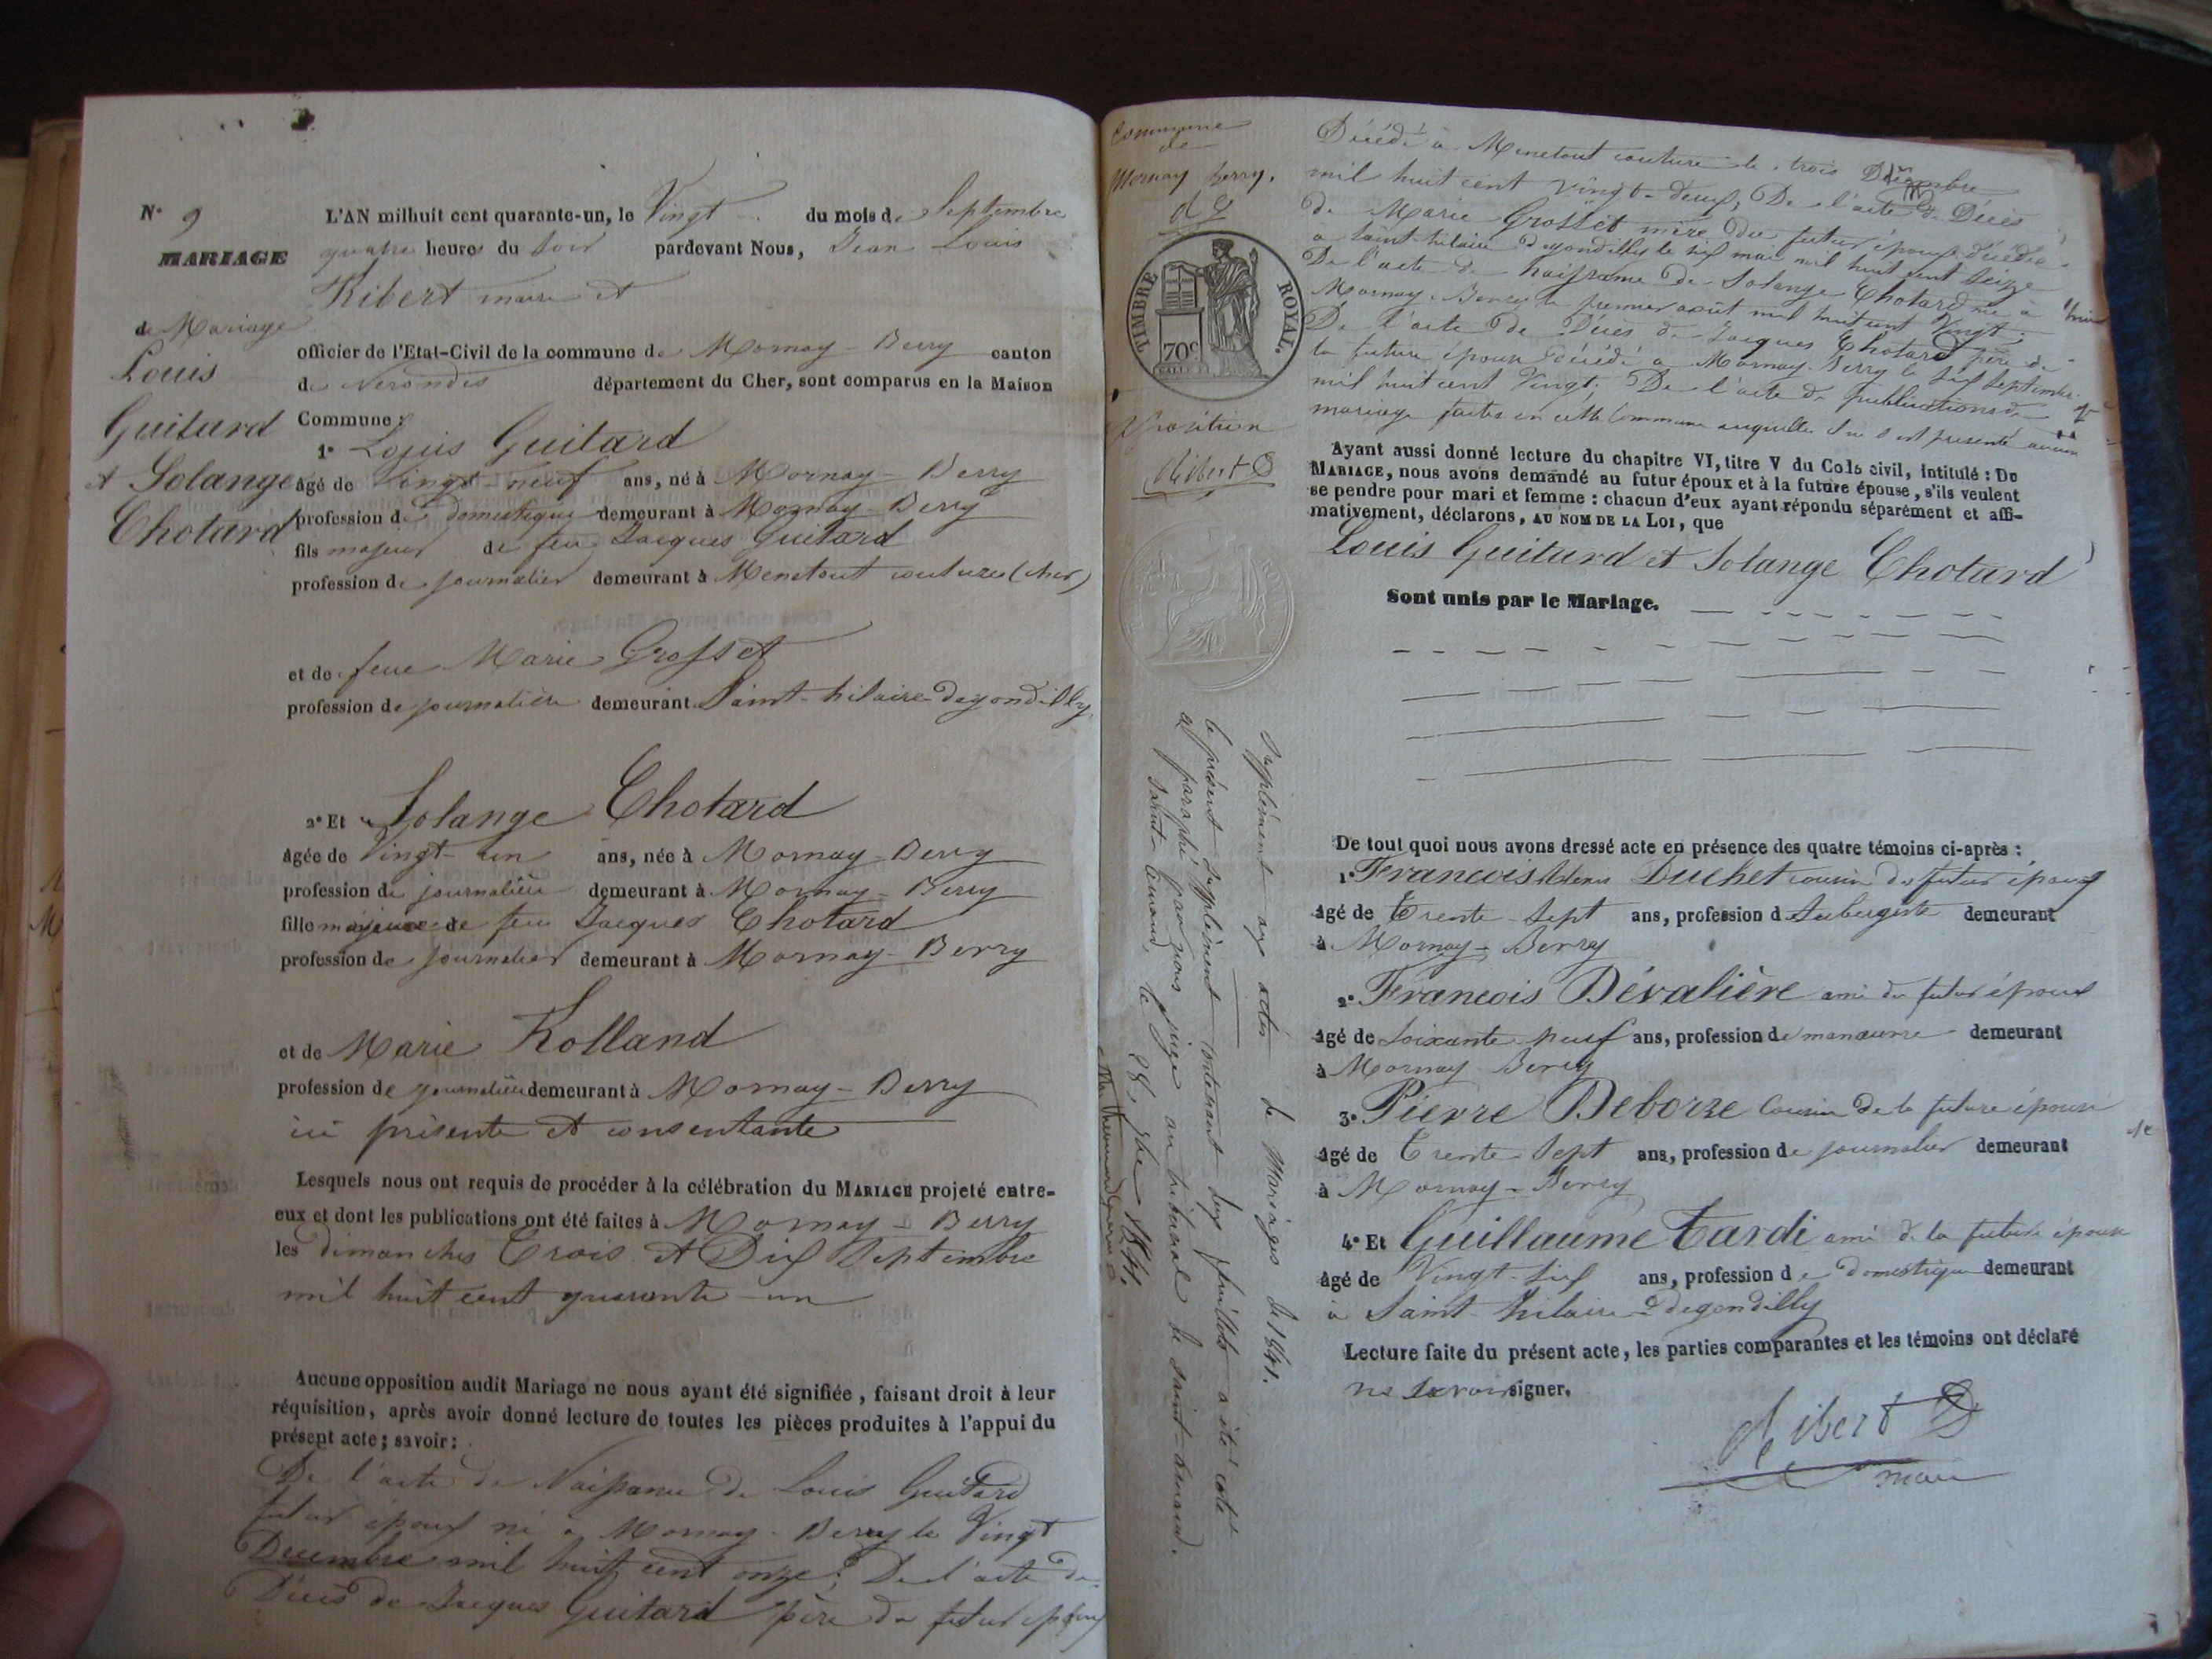 N° 9
MARIAGE
de Mariage
Louis
Guitard
et Solange
Chotard
L'AN milhuit cent quarante-un, le Vingt du mois de Septembre
quatre heures du Soir pardevant Nous, Jean Louis
Ribert maire et
officier de l'Etat-Civil de la commune de Mornay-Berry canton
de Nerondes département du Cher, sont comparus en la Maison
Commune :
1° Louis Guitard
âgé de Vingt-neuf ans, né à Mornay-Berry
profession de domestique demeurant à Mornay-Berry
fils majeur de feu Jacques Guitard
profession de journalier demeurant à Menetout couture (cher)
et de feue Marie Grosset
profession de journalière demeurant Saint-hilaire-degondilly
2° Et Solange Chotard
âgée de Vingt-un ans, née à Mornay-Berry
profession de journalière demeurant à Mornay-Berry
fille majeure de feu Jacques Chotard
profession de journalier demeurant à Mornay-Berry
et de Marie Rolland
profession de journalière demeurant à Mornay-Berry
ici présente et consentante
Lesquels nous ont requis de procéder à la célébration du MARIAGE projeté entre-
eux et dont les publications ont été faites à Mornay-Berry
les dimanches Trois et Dix Septembre
mil huit cent quarante-un
Aucune opposition audit Mariage ne nous ayant été signifiée, faisant droit à leur
réquisition, après avoir donné lecture de toutes les pièces produites à l'appui du
présent acte ; savoir :
De l'acte de Naissance de Louis Guitard
futur époux né à Mornay-Berry le Vingt
Decembre mil huit cent onze; De l'acte de
Décès de Jacques Guitard père du futur époux
Commune
de
Mornay berry.
TIMBRE ROYAL.
70c
Ribert
Supplément aux actes de Mariages de 1841.
le présent supplément contenant dix feuillets a été coté
et paraphé par nous juge au tribunal de saint-amand.
Saint-amand, le 28 1841.
Décédé à Menetout couture le trois Décembre
mil huit cent vingt-deux; De l'acte de Décès
de Marie Grosset mère du futur époux décédée
a saint-hilaire degondilly le six mai mil huit cent seize
De l'acte de naissance de Solange Chotard née à
Mornay-Berry le premier août mil huit cent Vingt;
De l'acte de Décès de Jacques Chotard père de
la future épouse décédé a Mornay-Berry le six Septembre
mil huit cent Vingt; De l'acte de publications de
mariage faites en cette Commune auquelle il ne s'est présenté aucun
Ayant aussi donné lecture du chapitre VI, titre V du Code civil, intitulé : Du
MARIAGE, nous avons demandé au futur époux et à la future épouse, s'ils veulent
se pendre pour mari et femme : chacun d'eux ayant répondu séparément et affi-
mativement, déclarons, AU NOM DE LA LOI, que
Louis Guitard et Solange Chotard
Sont unis par le Mariage.
De tout quoi nous avons dressé acte en présence des quatre témoins ci-après :
1° Francois Duchet cousin du futur époux
âgé de Trente-Sept ans, profession d Aubergiste demeurant
à Mornay-Berry
2° Francois Dévalière ami du futur époux
âgé de Soixante-neuf ans, profession de manœuvre demeurant
à Mornay-Berry
3° Pierre Deborze Cousin de la future épouse
âgé de Trente Sept ans, profession de journalier demeurant
à Mornay-Berry
4° Et Guillaume Tardi ami de la future épouse
âgé de Vingt-six ans, profession de domestique demeurant
à Saint-hilaire-degondilly
Lecture faite du présent acte, les parties comparantes et les témoins ont déclaré
ne savoir signer.
Ribert
maire